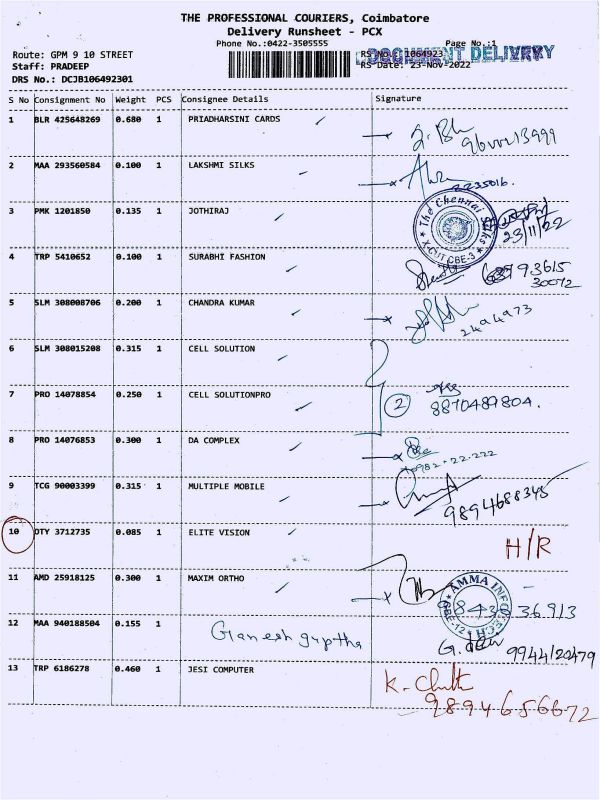 THE PROFESSIONAL COURIERS, Coimbatore
Delivery Runsheet - PCX
Phone No.:0422-3505555 Page No.:1
Route: GPM 9 10 STREET RS No.: 1064923
DOCUMENT DELIVERY
Staff: PRADEEP RS Date: 23-Nov-2022
DRS No.: DCJB106492301
S No Consignment No Weight PCS Consignee Details Signature
1 BLR 425648269 0.680 1 PRIADHARSINI CARDS
2 MAA 293560584 0.100 1 LAKSHMI SILKS
2235016.
3 PMK 1201850 0.135 1 JOTHIRAJ
The Chennai Silks
X-CUT CBE-3
23/11/22
4 TRP 5410652 0.100 1 SURABHI FASHION
93615
30072
5 SLM 308008706 0.200 1 CHANDRA KUMAR
2494973
6 SLM 308015208 0.315 1 CELL SOLUTION
7 PRO 14078854 0.250 1 CELL SOLUTIONPRO
2 8870489804.
8 PRO 14076853 0.300 1 DA COMPLEX
0982-22.222
9 TCG 90003399 0.315 1 MULTIPLE MOBILE
9894688345
10 DTY 3712735 0.085 1 ELITE VISION
H/R
11 AMD 25918125 0.300 1 MAXIM ORTHO
AMMA INFOTECH
CBE-12
36913
12 MAA 940188504 0.155 1 Ganesh guptha
9944120479
13 TRP 6186278 0.460 1 JESI COMPUTER
9894656672